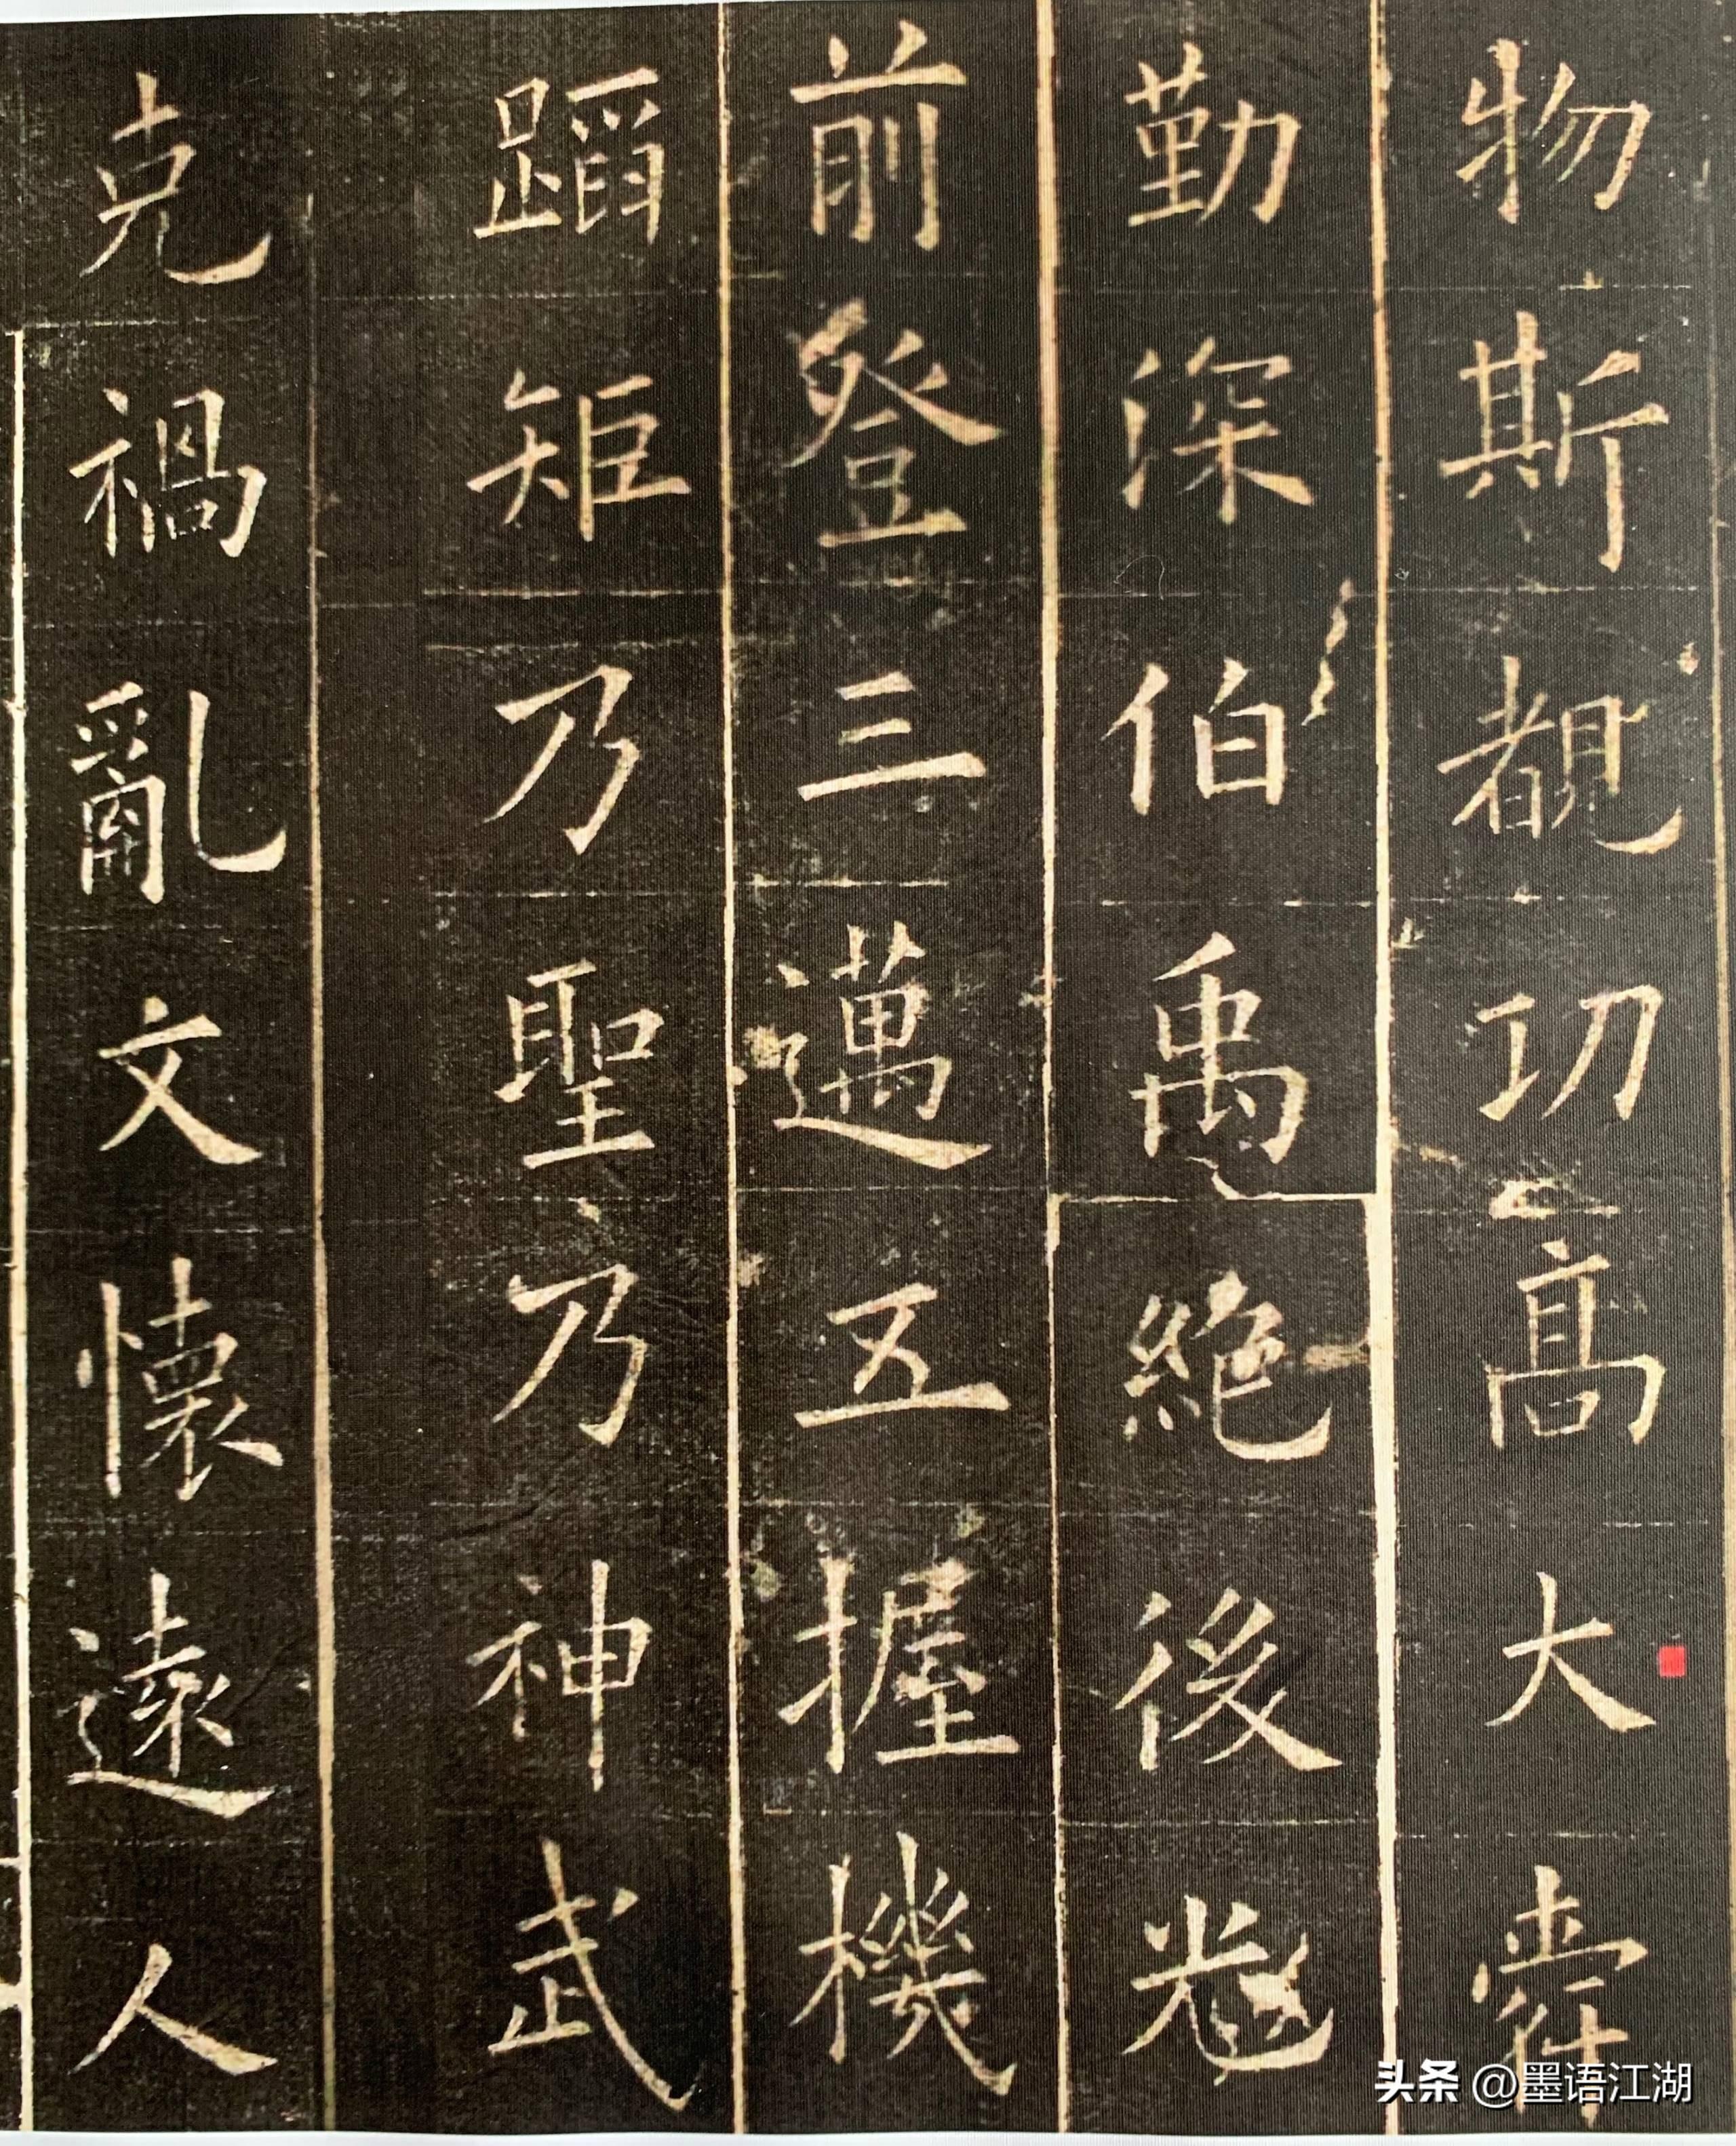 物斯覩功高大舜
勤深伯禹絶後光
前登三邁五握機
蹈矩乃聖乃神武
克禍亂文懷遠人
头条 @墨语江湖